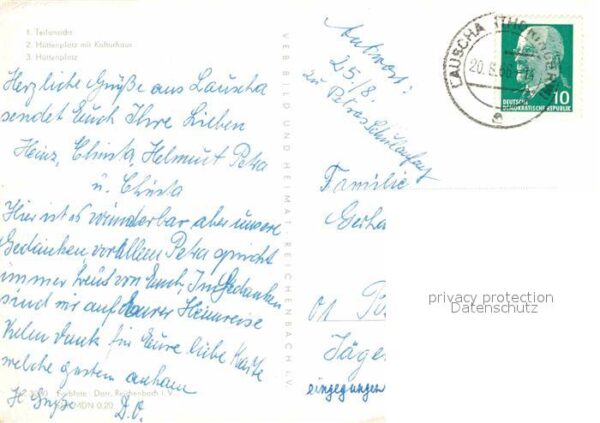 1. Teilansicht
2. Hüttenplatz mit Kulturhaus
3. Hüttenplatz
Herzliche Grüße aus Lauscha
sendet Euch Ihre Lieben
Heinz, Christa, Helmut Petra
u. Christa
Hier ist es wunderbar, aber unsere
Gedanken, vor allem Petra spricht
immer heut von Euch, Im Gedanken
sind wir auf Eurer Heimreise
Vielen Dank für Eure liebe Karte
welche gestern ankam
H. Grüße D.O.
Farbfoto: Darr, Reichenbach i. V.
MDN 0,20
VEB BILD UND HEIMAT REICHENBACH i. V.
Antwort:
25/8.
zu Petras Schulanfang
LAUSCHA (THÜR
20.8.66
DEUTSCHE
DEMOKRATISCHE REPUBLIK
10
Familie
Gerha
Jäge
eingegangen
privacy protection
Datenschutz